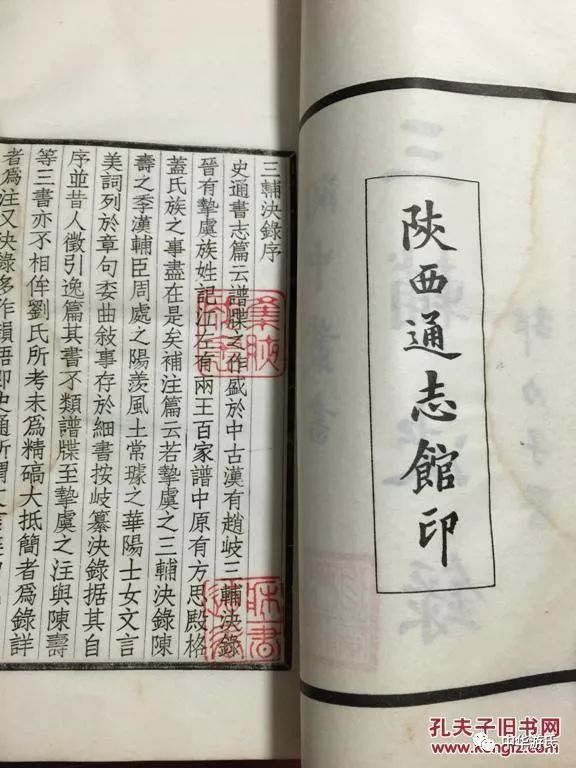 陝西通志館印
三輔決錄序
史通書志篇云譜牒之作盛於中古漢有趙岐三輔決錄
晉有摯虞族姓記江左有兩王百家譜中原有方思殿格
蓋氏族之事盡在是矣補注篇云若摯虞之三輔決錄陳
壽之季漢輔臣周處之陽羨風土常璩之華陽士女文言
美詞列於章句委曲敘事存於細書按岐纂決錄據其自
序並昔人徵引逸篇其書不類譜牒至摯虞之注與陳壽
等三書亦不相侔劉氏所考未爲精碻大抵簡者爲錄詳
者爲注又決錄多作韻語即史通所謂
孔夫子旧书网
中华游氏
www.kongfz.com